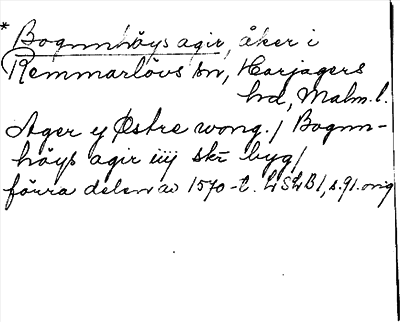 * Bognnhöys agir, åker i
Remmarlövs sn, Harjagers
hd, Malm. l.
Ager y Østre wong. / Bognn-
höys agir iiij skr byg /
förra delen av 1570-t. LSLB 1, s. 91. orig